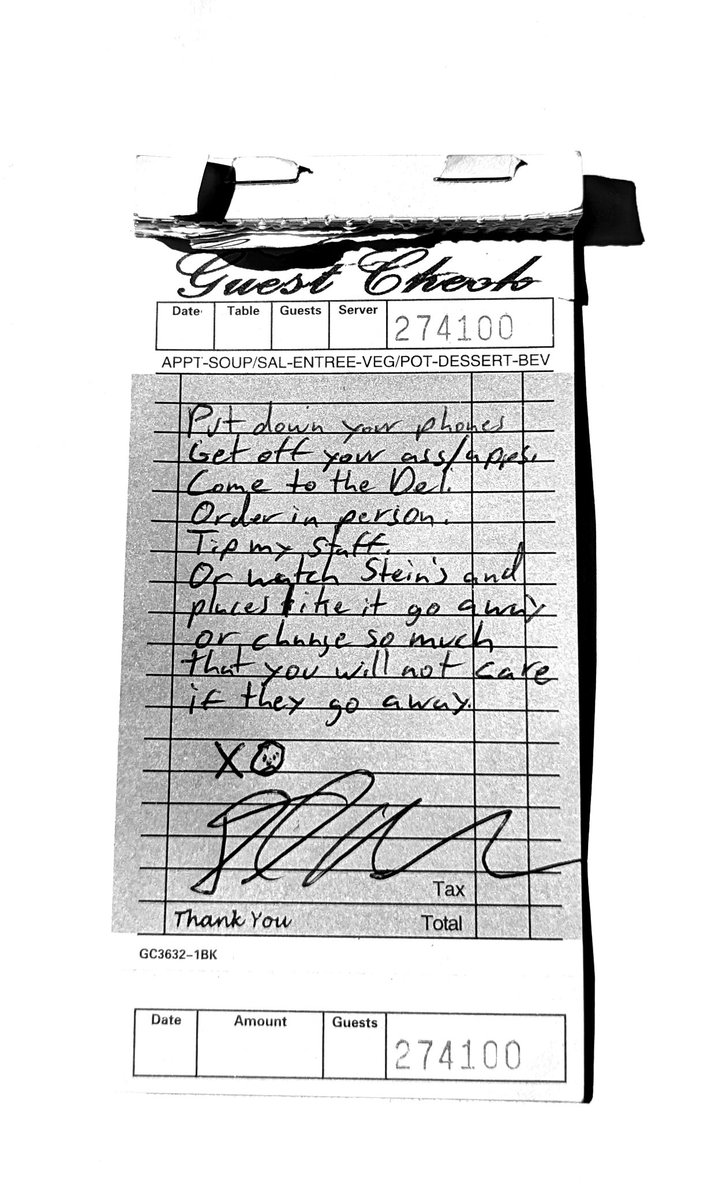 Guest Check
Date Table Guests Server 274100
APPT-SOUP/SAL-ENTREE-VEG/POT-DESSERT-BEV
Put down your phones
Get off your ass/apps.
Come to the Del.
Order in person.
Tip my staff.
Or watch Stein's and
places like it go away
or change so much
that you will not care
if they go away.
XO
Tax
Thank You Total
GC3632-1BK
Date Amount Guests 274100